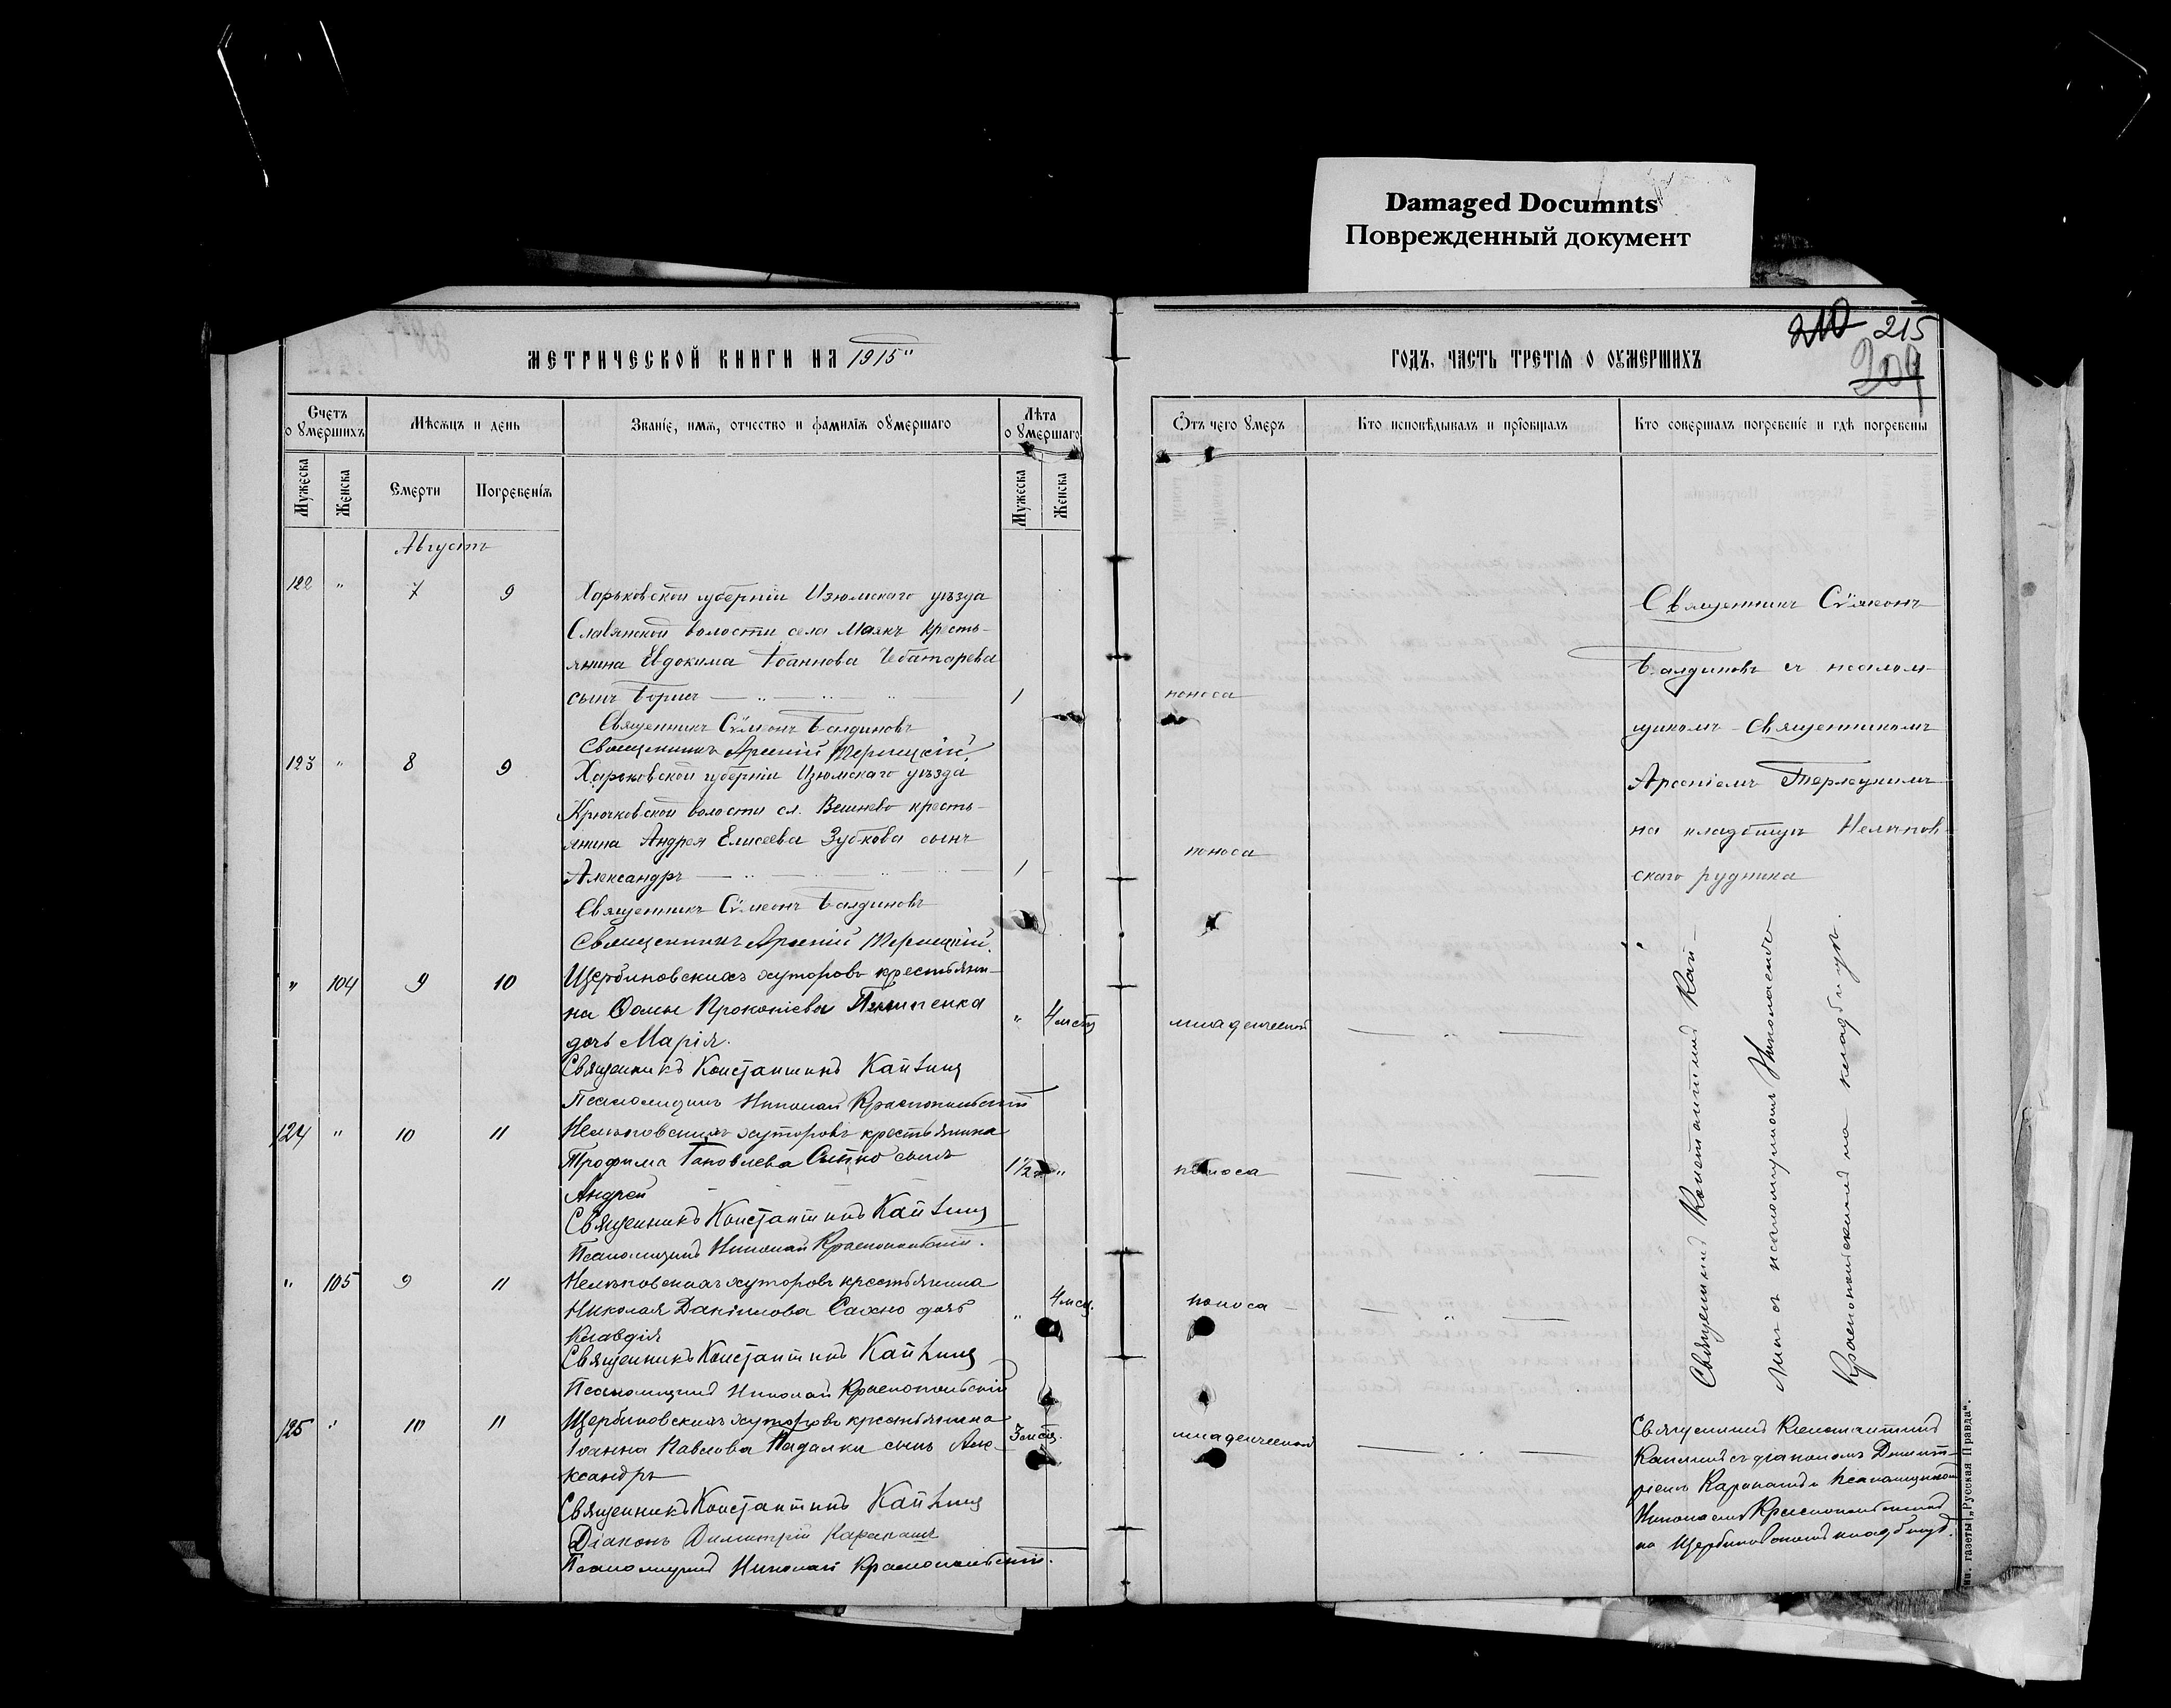 Damaged Documnts
Поврежденный документ
210 215
209
МЕТРИЧЕСКОЙ КНИГИ НА 1915"
ГОДЪ, ЧАСТЬ ТРЕТІѦ О ОУМЕРШИХЪ
Счетъ оумершихъ
Мѣсяцъ и день
Званіе, имя, отчество и фамилія оумершаго
Лѣта оумершаго
Отъ чего умеръ
Кто исповѣдывалъ и пріобщалъ
Кто совершалъ погребеніе и гдѣ погребены
Мужеска
Женска
Смерти
Погребенія
Мужеска
Женска
Августъ
122 " 7 9
Харьковской губерніи Изюмскаго уѣзда
Славянской волости села Маякъ кресть-
янина Евдокима Іоаннова Чеботарева
сынъ Борисъ
1
поноса
Священникъ Сѵмеонъ Балдиновъ
Священникъ Арсеній Терлецкій.
123 " 8 9
Харьковской губерніи Изюмскаго уѣзда
волости сл. кресть-
янина Андрея Елисеева Зубкова сынъ
Александръ
1
поноса
Священникъ Сѵмеонъ Балдиновъ
Священникъ Арсеній Терлецкій.
Священникъ Сѵмеонъ
Балдиновъ съ псалом-
щикомъ - Священникомъ
Арсеніемъ Терлецкимъ
на кладбищѣ Нелѣпов-
скаго рудника
" 104 9 10
Щербиновскихъ хуторовъ крестьяни-
на Ѳомы Прокопіева
дочь Марія.
" 4 мсц
младенческой
Священникъ Константинъ
Псаломщикъ Николай Краснопольскій
124 " 10 11
Нелѣповскихъ хуторовъ крестьянина
Трофима Іаковлева сынъ
Андрей
1 1/2 "
поноса
Священникъ Константинъ
Псаломщикъ Николай Краснопольскій.
" 105 9 11
Нелѣповскихъ хуторовъ крестьянина
Николая Даніилова Сахно дочь
Клавдія
" 4 мсц.
поноса
Священникъ Константинъ
Псаломщикъ Николай Краснопольскій
Священникъ Константинъ
съ псаломщикомъ Николаемъ
Краснопольскимъ на кладбищѣ.
125 " 10 11
Щербиновскихъ хуторовъ крестьянина
Іоанна Павлова Падалки сынъ Але-
ксандръ
3 мсц.
младенческой
Священникъ Константинъ
Діаконъ Димитрій
Псаломщикъ Николай Краснопольскій.
Священникъ Константинъ
съ діакономъ Димит-
ріемъ и псаломщикомъ
Николаемъ Краснопольскимъ
на Щербиновскомъ кладбищѣ.
тип. газеты „Русская Правда".